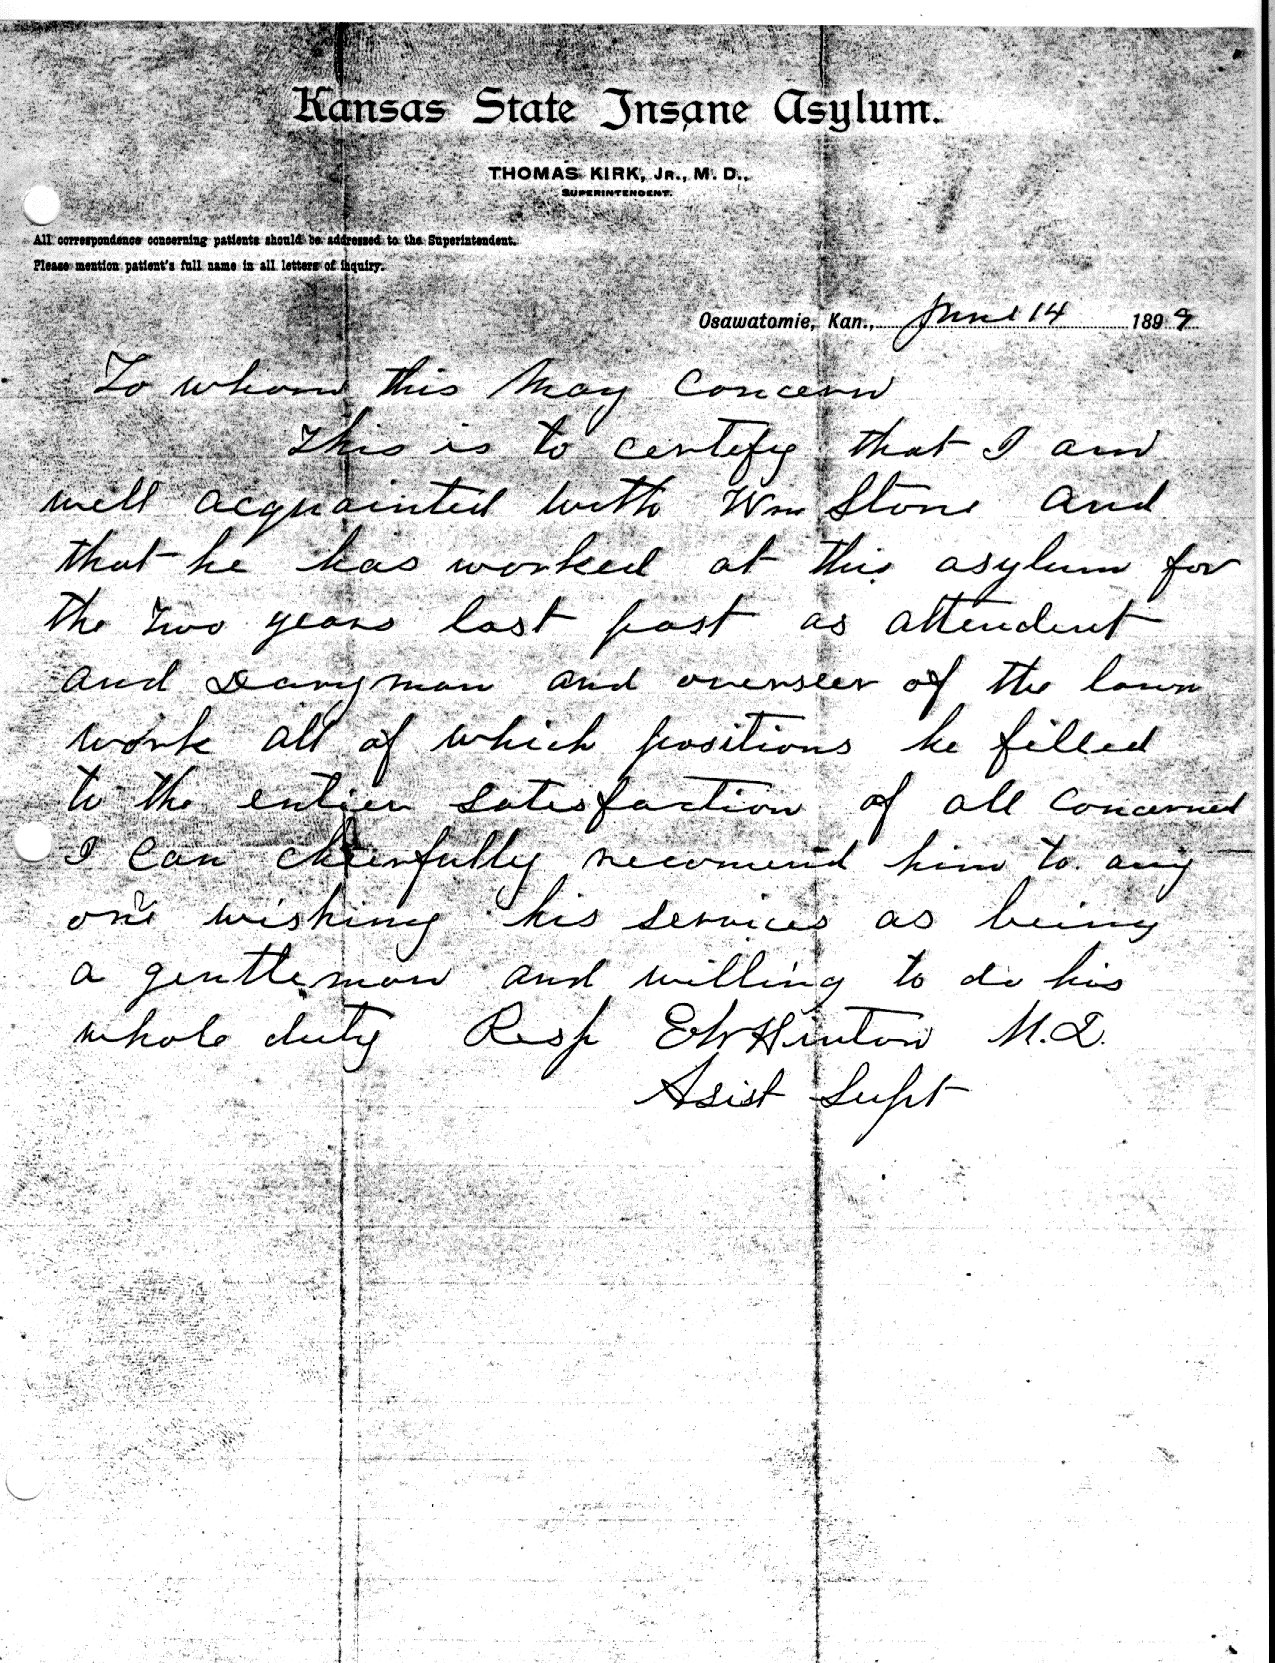 Kansas State Insane Asylum.
THOMAS KIRK, JR., M. D.,
SUPERINTENDENT.
All correspondence concerning patients should be addressed to the Superintendent.
Please mention patient's full name in all letters of inquiry.
Osawatomie, Kan., June 14 1899
To whom this May Concern
This is to certify that I am
well acquainted with Wm Stone and
that he has worked at this asylum for
the two years last past as attendent
and Daryman and overseer of the lawn
work all of which positions he filled
to the entier satesfaction of all concerned
I can cheerfully recomend him to any
one wishing his services as being
a gentleman and willing to do his
whole duty Resp EW Hinton M.D.
Asist Supt